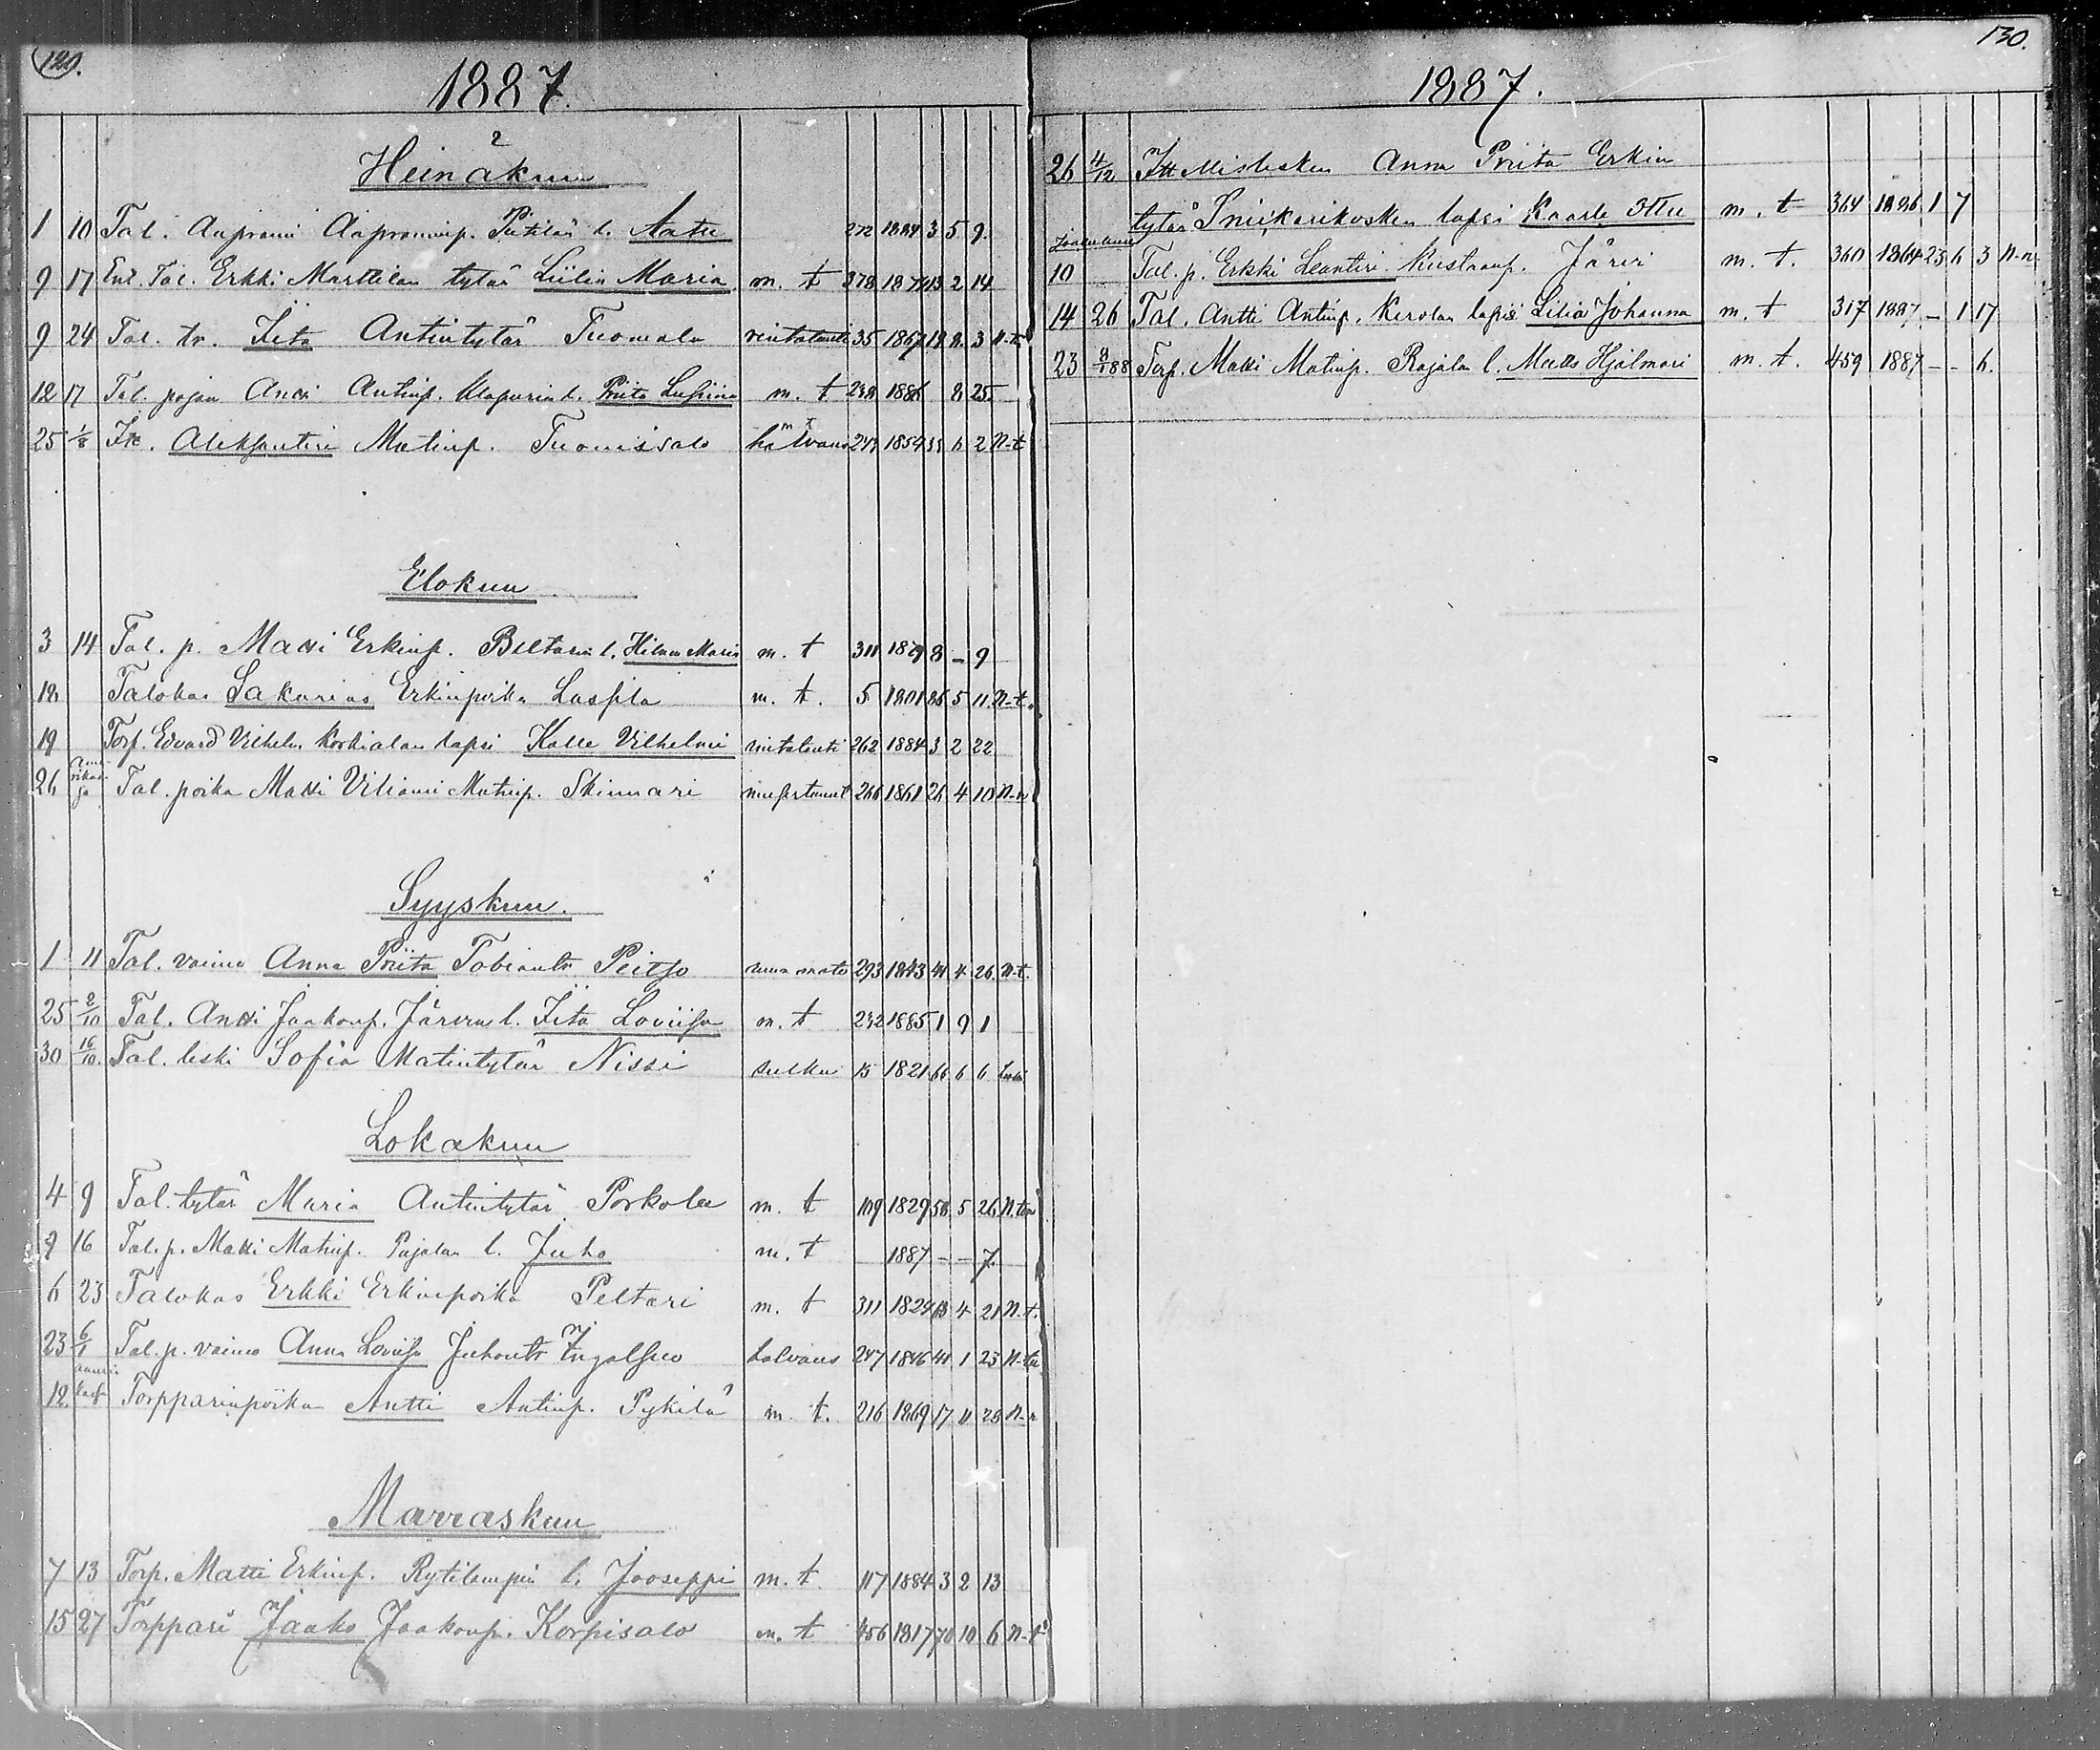 129.
1887.
Heinäkuu
1 10 Tal. Aaprami Aapraminp. Pūtilän l. Aatu 272 1884 3 5 9.
9 17 Ent. Tal. Erkki Marttilan tytär Liilia Maria m. t 378 1874 13 2 14
9 24 Tal. tr. Iita Antintytär Tuomala rintatauti 35 1867 19
12 17 Tal. pojan Antti Antinp. Klapurin l. Priita m. t 1886 8 25.
25 1/8 Itk. Aleksanteri Matinp. Tuomisalo halvaus 1854 6 2 N-t
Elokuu
3 14 Tal. p. Matti Erkinp. Peltarin l. Hilma Maria m. t 311 1879 8 - 9
18 Talokas Sakarias Erkinpoika Lassila m. t. 5 1801 86 5 11 N-t.
19 Torp. Edvard Vilhelm Korkialan lapsi Kalle Vilhelmi rintatauti 262 1884 3 2 22
26 Tal. poika Matti Viliami Matinp. Skinnari 266 1861 26 4 10 N-n
Syyskuu.
1 11 Tal. vaimo Anna Priita Tobiantr Peitso 293 1843 44 4 26. N-t.
25 2/10 Tal. Antti Jaakonp. Järven l. Iita Loviisa m. t 232 1885 1 9 1
30 16/10. Tal. leski Sofia Matintytär Nissi 15 1821 66 6 6 Leski
Lokakuu
4 9 Tal. tytär Maria Antintytär Porkola m. t 109 1829 58 5 26 N.
9 16 Tal. p. Matti Matinp. Pajalan l. Juho m. t 1887 - - 7.
6 23 Talokas Erkki Erkinpoika Peltari m. t 311 1824 63 4 21 N.t.
23 6/1 Tal. p. vaimo Anna Loviisa Juhontr Ingalsuo halvaus 247 1846 41 1 23
12. Torpparinpoika Antti Antinp. Pykilä m. t. 216 1869 17 11 N-n
Marraskuu
7 13 Torp. Matti Erkinp. Rytilammin l. Jooseppi m. t. 117 1884 3 2 13
15 27 Torppari Jaako Jaakonp. Korpisalo m. t 456 1817 70 10 6 N-t
130.
1887.
26 4/12 Itt Mistesken Anna Priita Erkin
tytär Sniikarikosken lapsi Kaarle Ottu m. t 364 1886 1 7
Joulukuu
10 Tal. p. Erkki Leanteri Kustaanp. Järvi m. t. 360 1864 23 6 3 N-n
14 26 Tal. Antti Antinp. Kerolan lapsi Lilia Johanna m. t 317 1887 - 1 17
23 Torp. Matti Matinp. Rajalan l. Matts Hjalmari m. t. 459 1887 - - 6.